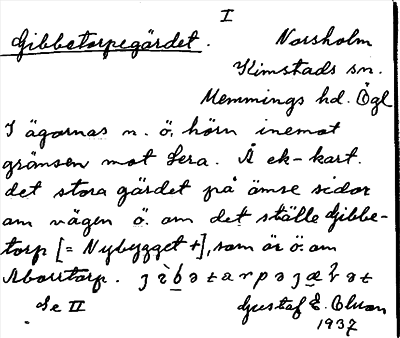 I
Gibbetorpegärdet.
Norsholm
Kimstads sn.
Memmings hd. Ögl
I ägornas n. ö. hörn inemot
gränsen mot Sera. Å ek-kart.
det stora gärdet på ömse sidor
om vägen ö. om det ställe Gibbe-
torp [= Nybygget +], som är ö. om
Aborrtorp.
Se II
Gustaf E. Olson
1937